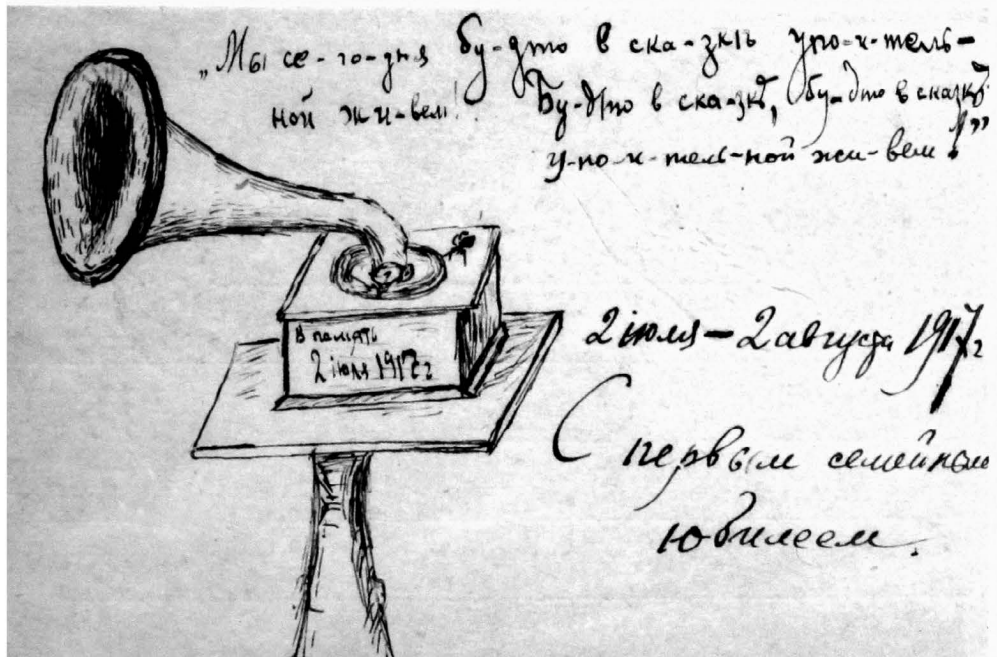 „Мы се-го-дня бу-дто в ска-зкѣ упо-и-тель-
ной жи-вем! Бу-дто в ска-зкѣ, бу-дто в сказкѣ
у-по-и-тель-ной жи-вем!”
В память
2 iюля 1917 г
2 iюля — 2 августа 1917 г
С первым семейным
юбилеем.